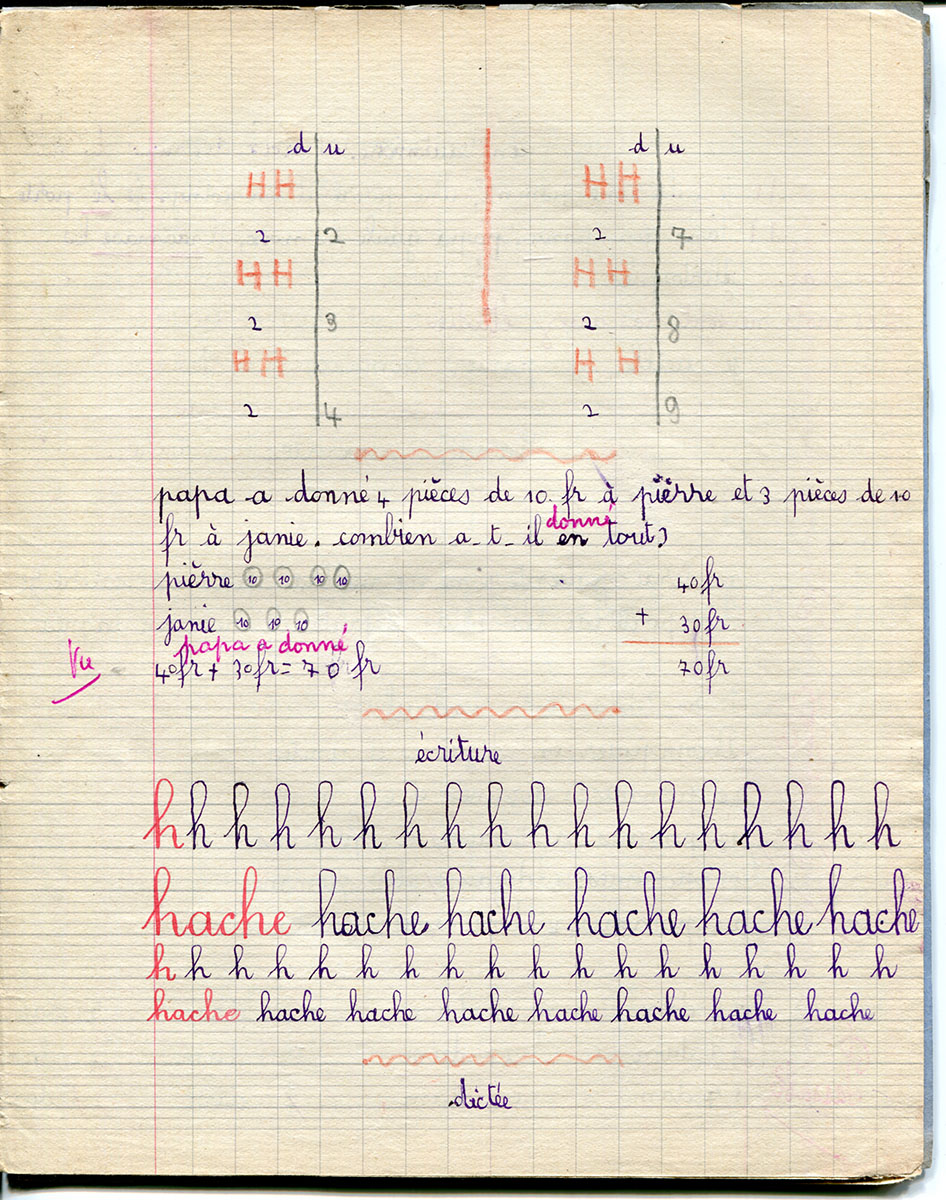 d u d u
HH HH
2 2 2 7
HH HH
2 3 2 8
HH H H
2 4 2 9
papa a donné 4 pièces de 10 fr à pierre et 3 pièces de 10
donné
fr à janie. combien a-t-il en tout?
pierre 10 10 10 10 40fr
janie 10 10 10 + 30fr
papa a donné
Vu 40fr + 30fr = 70 fr 70fr
écriture
h h h h h h h h h h h h h h h h h h
hache hache hache hache hache hache
h h h h h h h h h h h h h h h h h h
hache hache hache hache hache hache hache hache
dictée